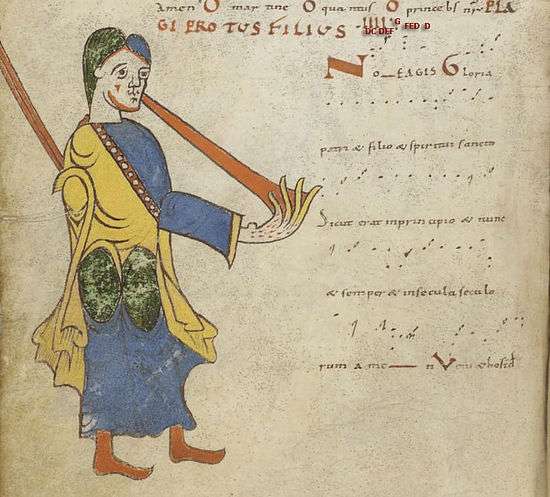 Amen O mar tine O O PLA
GI PROTUS FILIUS DC DEF G FED D
NO_EAGIS Gloria
patri & filio & spiritui sancto
Sicut erat inprincipio & nunc
& semper & insecula seculo
rum a me n